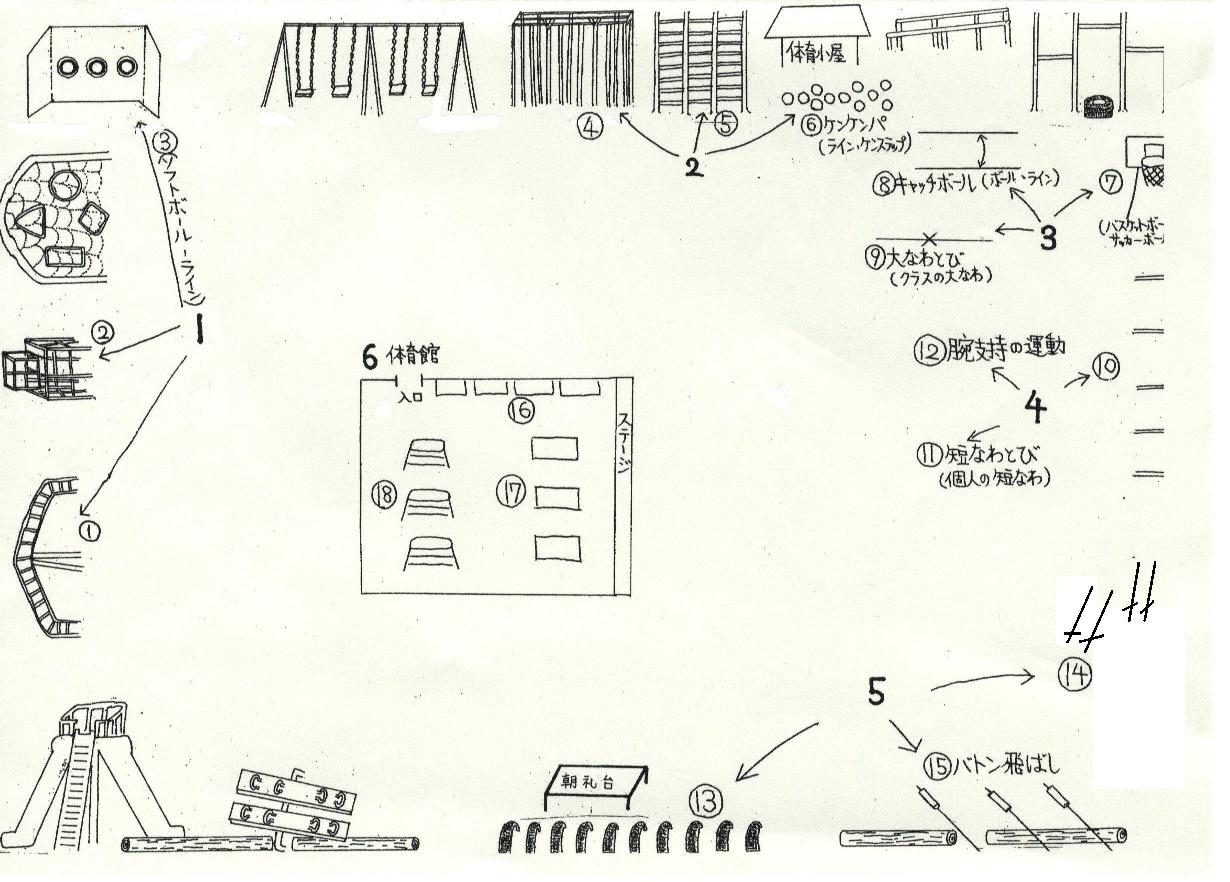 体育小屋
③
(ソフトボール・ライン)
④
⑤
⑥ケンケンパ
(ライン・ケンステップ)
2
⑧キャッチボール(ボール・ライン)
⑦
(バスケットボー
サッカーボー
3
⑨大なわとび
(クラスの大なわ)
②
1
⑫腕支持の運動
⑩
4
⑪短なわとび
(個人の短なわ)
①
6 体育館
入口
⑯
ステージ
⑱
⑰
5
⑭
⑮バトン飛ばし
朝礼台
⑬